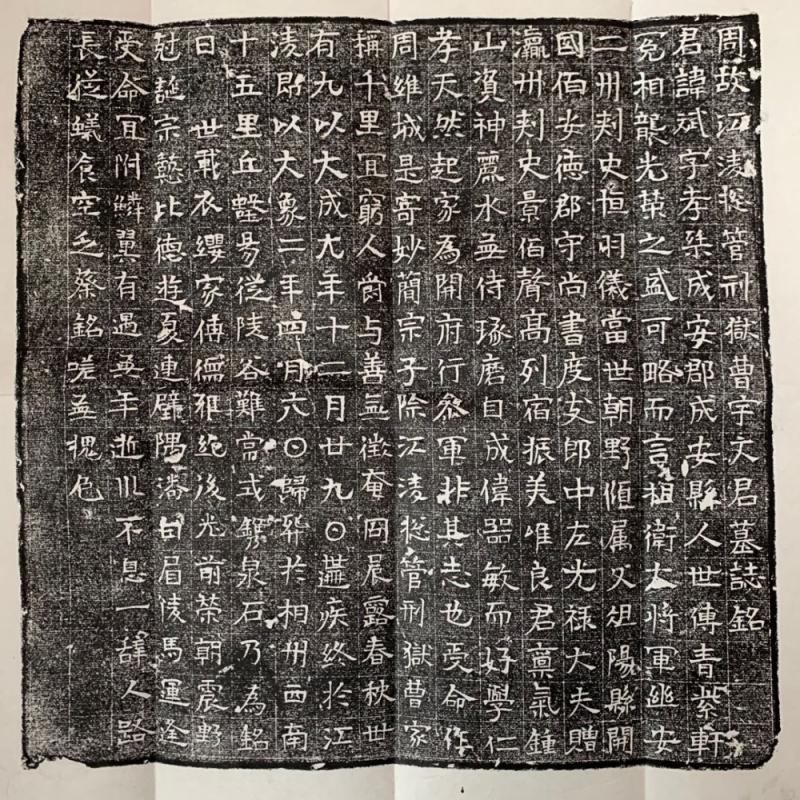 周故江淩捴管刑獄曹宇文君墓誌銘
君諱斌字孝集成安郡成安縣人世傳青紫軒
冕相襲光榮之盛可略而言祖衛大將軍幽安
二州刾史恒羽儀當世朝野傾属父俎陽縣開
國伯安德郡守尚書度支郎中左光禄大夫贈
瀛州刾史景伯聲高列宿振美唯良君禀氣鍾
山資神麗水無待琢磨自成偉器敏而好學仁
孝天然起家為開府行叅軍非其志也受命作
周維城是寄妙簡宗子除江淩捴管刑獄曹家
稱千里冝窮人爵与善無徵奄同晨露春秋卅
有九以大成九年十二月廿九日遘疾終於江
淩即以大象二年四月六日歸葬於相州西南
十五里丘壑易從陵谷難當式鐫泉石乃為銘
曰 世載衣纓家傳儒雅絶後光前榮朝震野
冠誕宗懿比德遊夏連璧隅潘白眉陵馬運逢
受命冝附鱗翼有遇無年逝川不息一辭人路
長從蟻食空乏蔡銘嗟無愧色